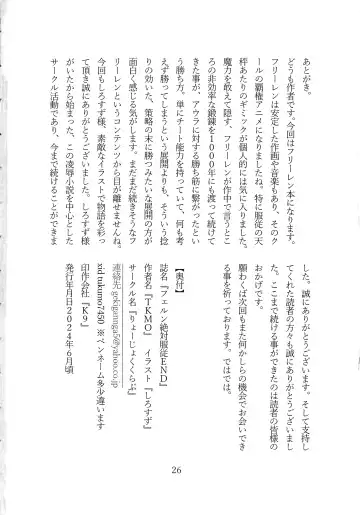 あとがき。
どうも作者です。今回はフリーレン本になります。
フリーレンは安定した作画や音楽もあり、そのク
ールの覇権アニメになりましたね。特に服従の天
秤あたりのギミックが個人的には気に入りました。
魔力を敢えて隠す、フリーレンが作中で言うとこ
ろの非効率な鍛錬を1000年にも渡って続けて
きた事が、アウラに対する勝ち筋に繋がったとい
う勝ち方。単にチート能力を持っていて、何も考
えず勝ってしまうという展開よりも、そういう捻
りの効いた、策略の末に勝つみたいな展開の方が
面白く感じる気がします。まだまだ続きそうなフ
リーレンというコンテンツから目が離せませんね。
今回もしろすず様、素敵なイラストで物語を彩っ
て頂き誠にありがとうございました。しろすず様
がいたから始まった、この凌辱小説を中心とした
サークル活動であり、今まで続けることができま
した。誠にありがとうございます。そして支持し
てくれた読者の方々も誠にありがとうございまし
た。ここまで続ける事ができたのは読者の皆様の
おかげです。
願わくば次回もまた何かしらの機会でお会いでき
る事を祈っております。ではでは。
【奥付】
誌名『フェルン絶対服従END』
作者名『TKMO』　イラスト『しろすず』
サークル名『りょーじょくくらぶ』
連絡先 go6naga5@yahoo.co.jp
xid rukumo7450 ※ペンネーム多少違います
印刷会社『K9』
発行年月日2024年6月頃
26